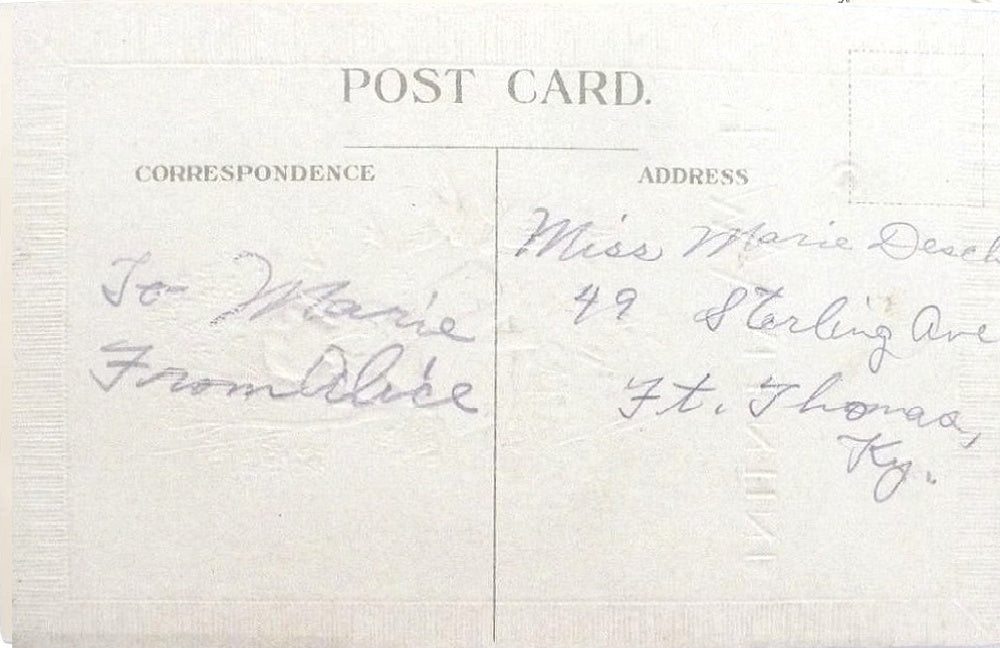 POST CARD.
CORRESPONDENCE
To Marie
From Alice
ADDRESS
Miss Marie Desch
49 Sterling Ave
Ft. Thomas,
Ky.